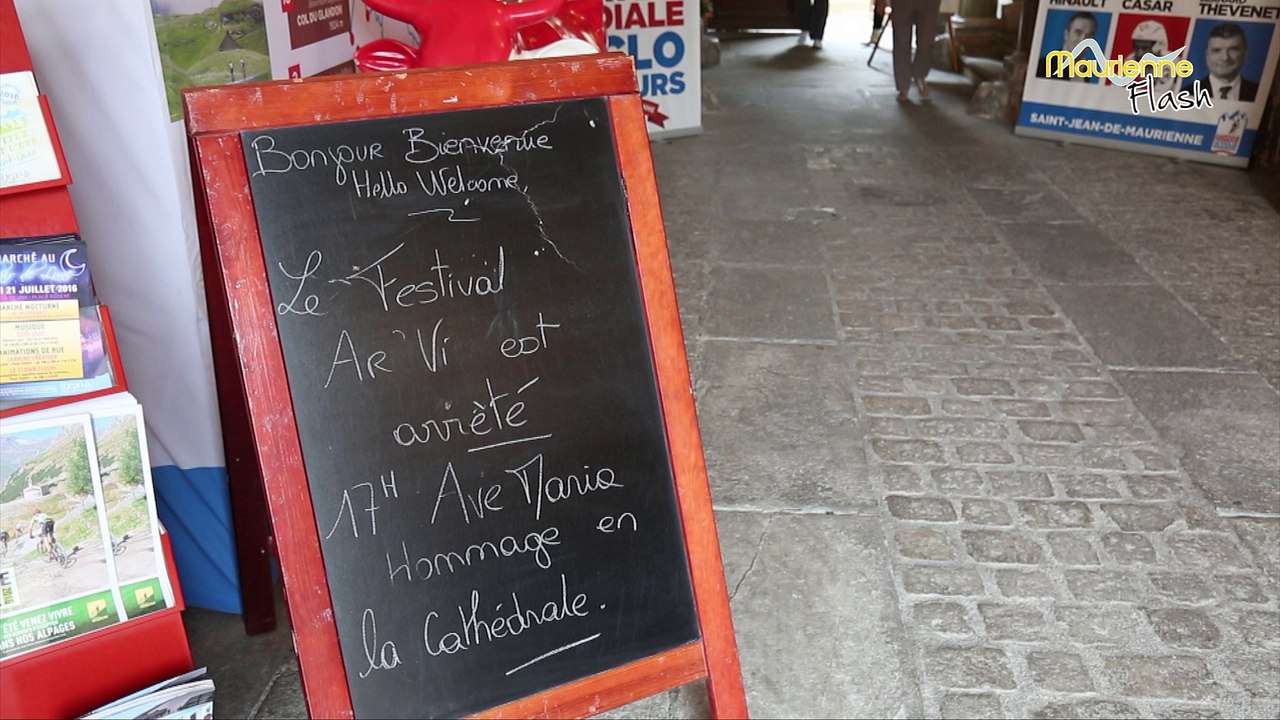 Bonjour Bienvenue
Hello Welcome
Le Festival
Ar'Vi est
arrêté
17H Ave Maria
Hommage en
la Cathédrale.
COL DU GLANDON
DIALE
CLO
URS
HINAULT
CASAR
THEVENET
SAINT-JEAN-DE-MAURIENNE
Maurienne
Flash
ARCHÉ AU
I 21 JUILLET 2016
ARCHÉ NOCTURNE
MUSIQUE
ANIMATIONS DE RUE
ÉTÉ VENEZ VIVRE
ANS NOS ALPAGES